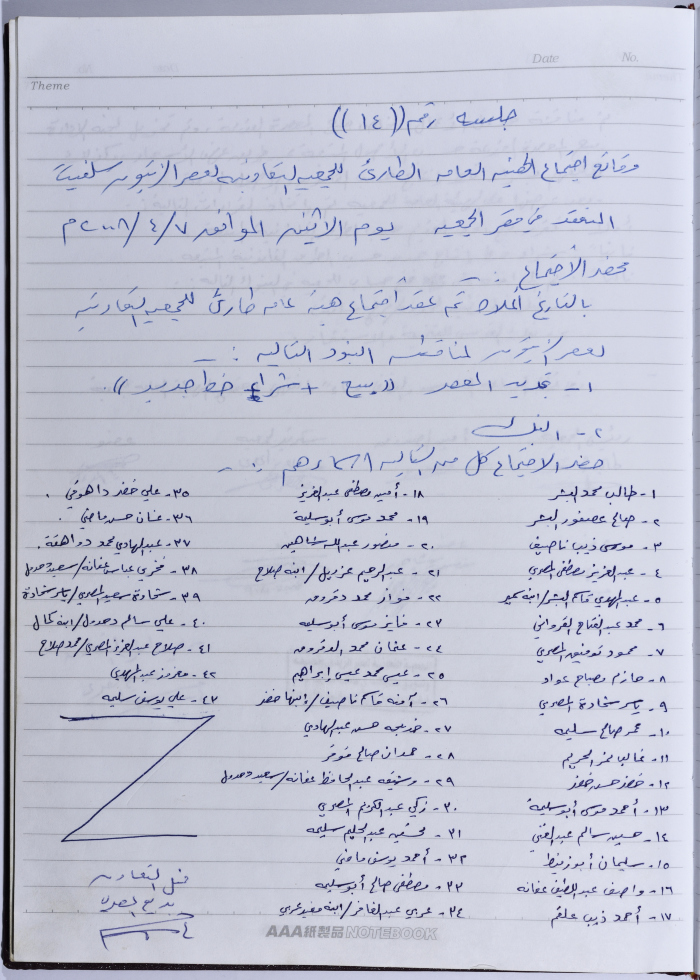 Date No.
Theme
جلسة رقم ((١٤))
وقائع اجتماع الهيئة العامه الطارئ للجمعيه التعاونيه لعصر الزيتون سلفيت
المنعقد في مقر الجمعيه يوم الاثنين الموافق ٢٠٠٨/٤/٧م
محضر الاجتماع :-
بالتاريخ اعلاه تم عقد اجتماع هيئة عامه طارئ للجمعيه التعاونيه
لعصر الزيتون لمناقشة البنود التاليه :-
١- تجديد المعصره ((بيع + شراء خط جديد)).
٢- البنك
حضر الاجتماع كل من التاليه اسماءهم :-
١- طالب محمد البشر
٢- صالح عصفور البشر
٣- موسى ذيب ناصيف
٤- عبد العزيز مصطفى المصري
٥- عبد المهدي قاسم البشر/ابنه سمير
٦- محمد عبد الفتاح القرواني
٧- محمود توفيق المصري
٨- حازم مصباح عواد
٩- ياسر شحادة المصري
١٠- عمر صالح سليمه
١١- غالب نمر الحريم
١٢- خضر حسن خضر
١٣- أحمد موسى أبو سليمة
١٤- حسين سالم عبد الغني
١٥- سليمان أبو زنط
١٦- واصف عبد اللطيف عفانه
١٧- أحمد ذيب علقم
١٨- أمين مصطفى عبد العزيز
١٩- محمد موسى أبو سليمة
٢٠- منصور عبد الله شاهين
٢١- عبد الرحيم عزريل/ابنه صلاح
٢٢- فواز محمد دقروسه
٢٣- فايز موسى أبو سليمه
٢٤- عثمان محمد الدقروسه
٢٥- عيسى محمد عيسى إبراهيم
٢٦- آمنه قاسم ناصيف/ابنها خضر
٢٧- خديجه حسن عبد الهادي
٢٨- حمدان صالح
٢٩- رشيقه عبد الحافظ عفانه/سعيد
٣٠- زكي عبد الكريم المصري
٣١- عبد الحليم سليمه
٣٢- أحمد يوسف ماضي
٣٣- مصطفى صالح أبو سليمه
٣٤- عربي عبد القادر/ابنه
٣٥- علي خضر
٣٦- غسان حسن ماضي
٣٧- عبد الهادي محمد دواهقة
٣٨- فخري عباس عفانه/سعيد
٣٩- شحادة سعيد المصري/ياسر شحادة
٤٠- علي سالم/ابنه كمال
٤١- صلاح عبد العزيز المصري/محمد صلاح
٤٢- معزوز عبد المهدي
٤٣- علي يوسف سليمه
AAA紙製品 NOTEBOOK